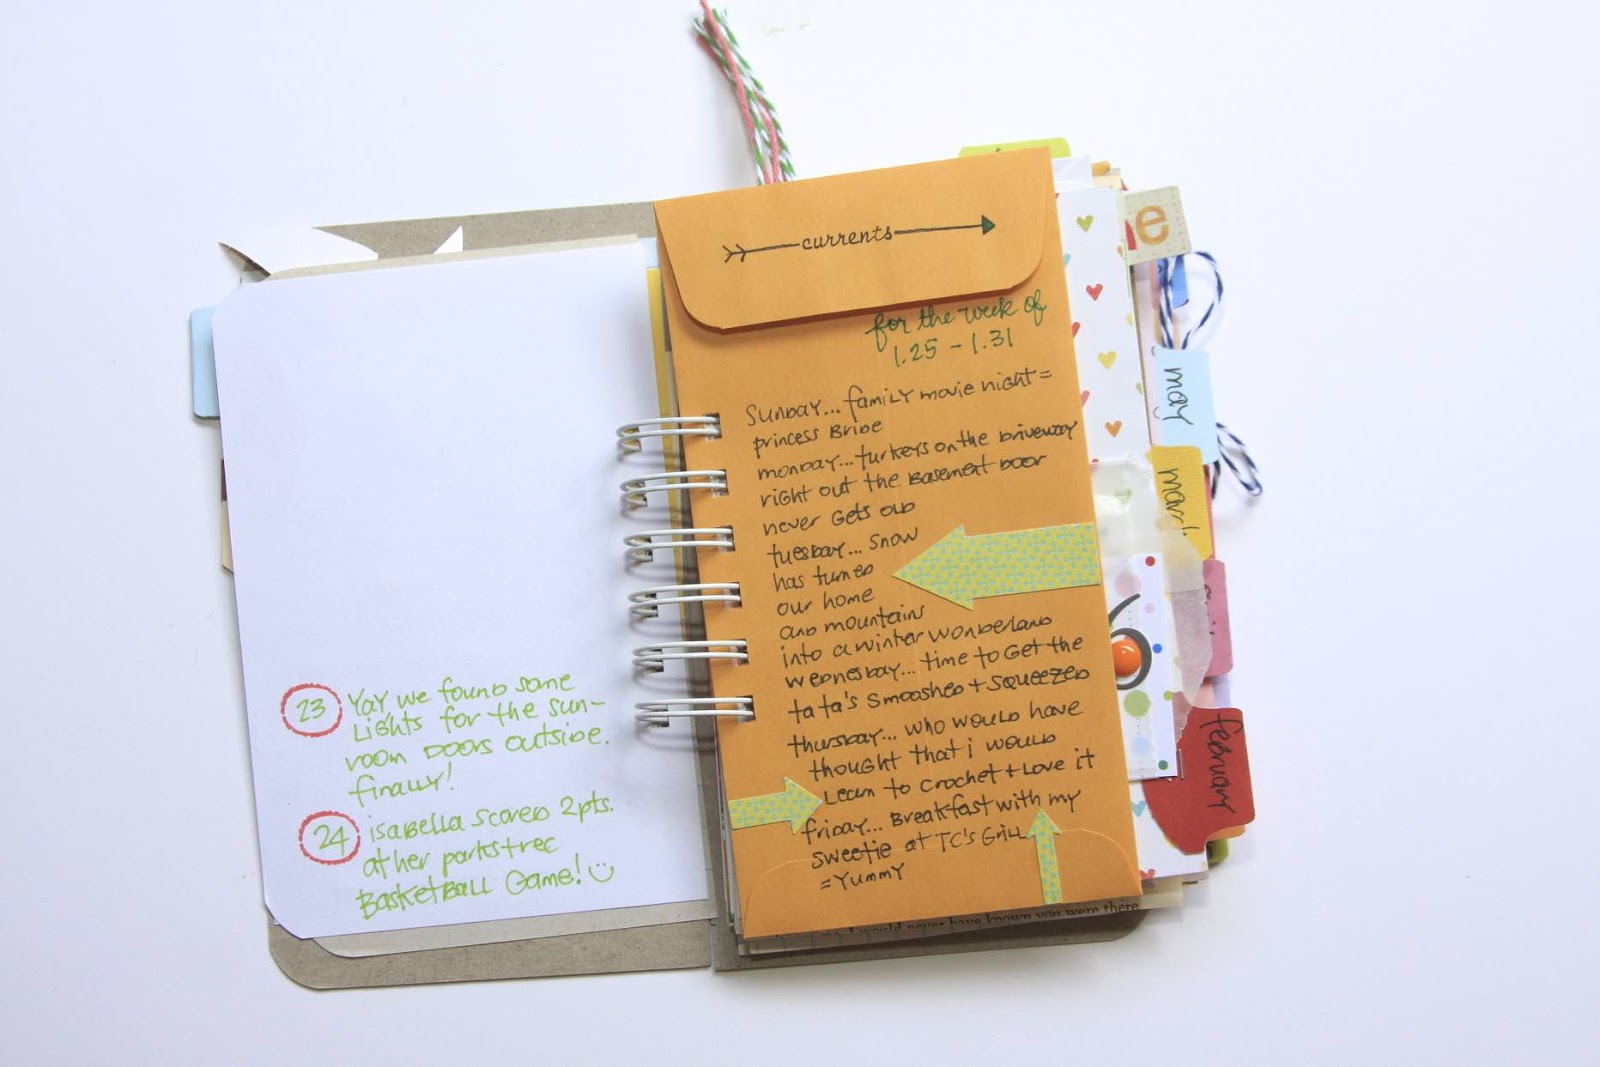 23 Yay we found some
Lights for the sun-
room doors outside.
finally!
24 isabella scored 2pts.
at her parks+rec
Basketball Game! ☺
currents
for the week of
1.25 - 1.31
Sunday... family movie night =
princess Bride
monday... turkeys on the driveway
right out the Basement door
never Gets old
tuesday... snow
has turned
our home
and mountains
into a winter wonderland
wednesday... time to Get the
ta ta's smooshed + squeezed
thursday... who would have
thought that i would
Learn to crochet + Love it
friday... Breakfast with my
sweetie at TC's Grill
= Yummy
e
may
6
february
I would never have known you were there